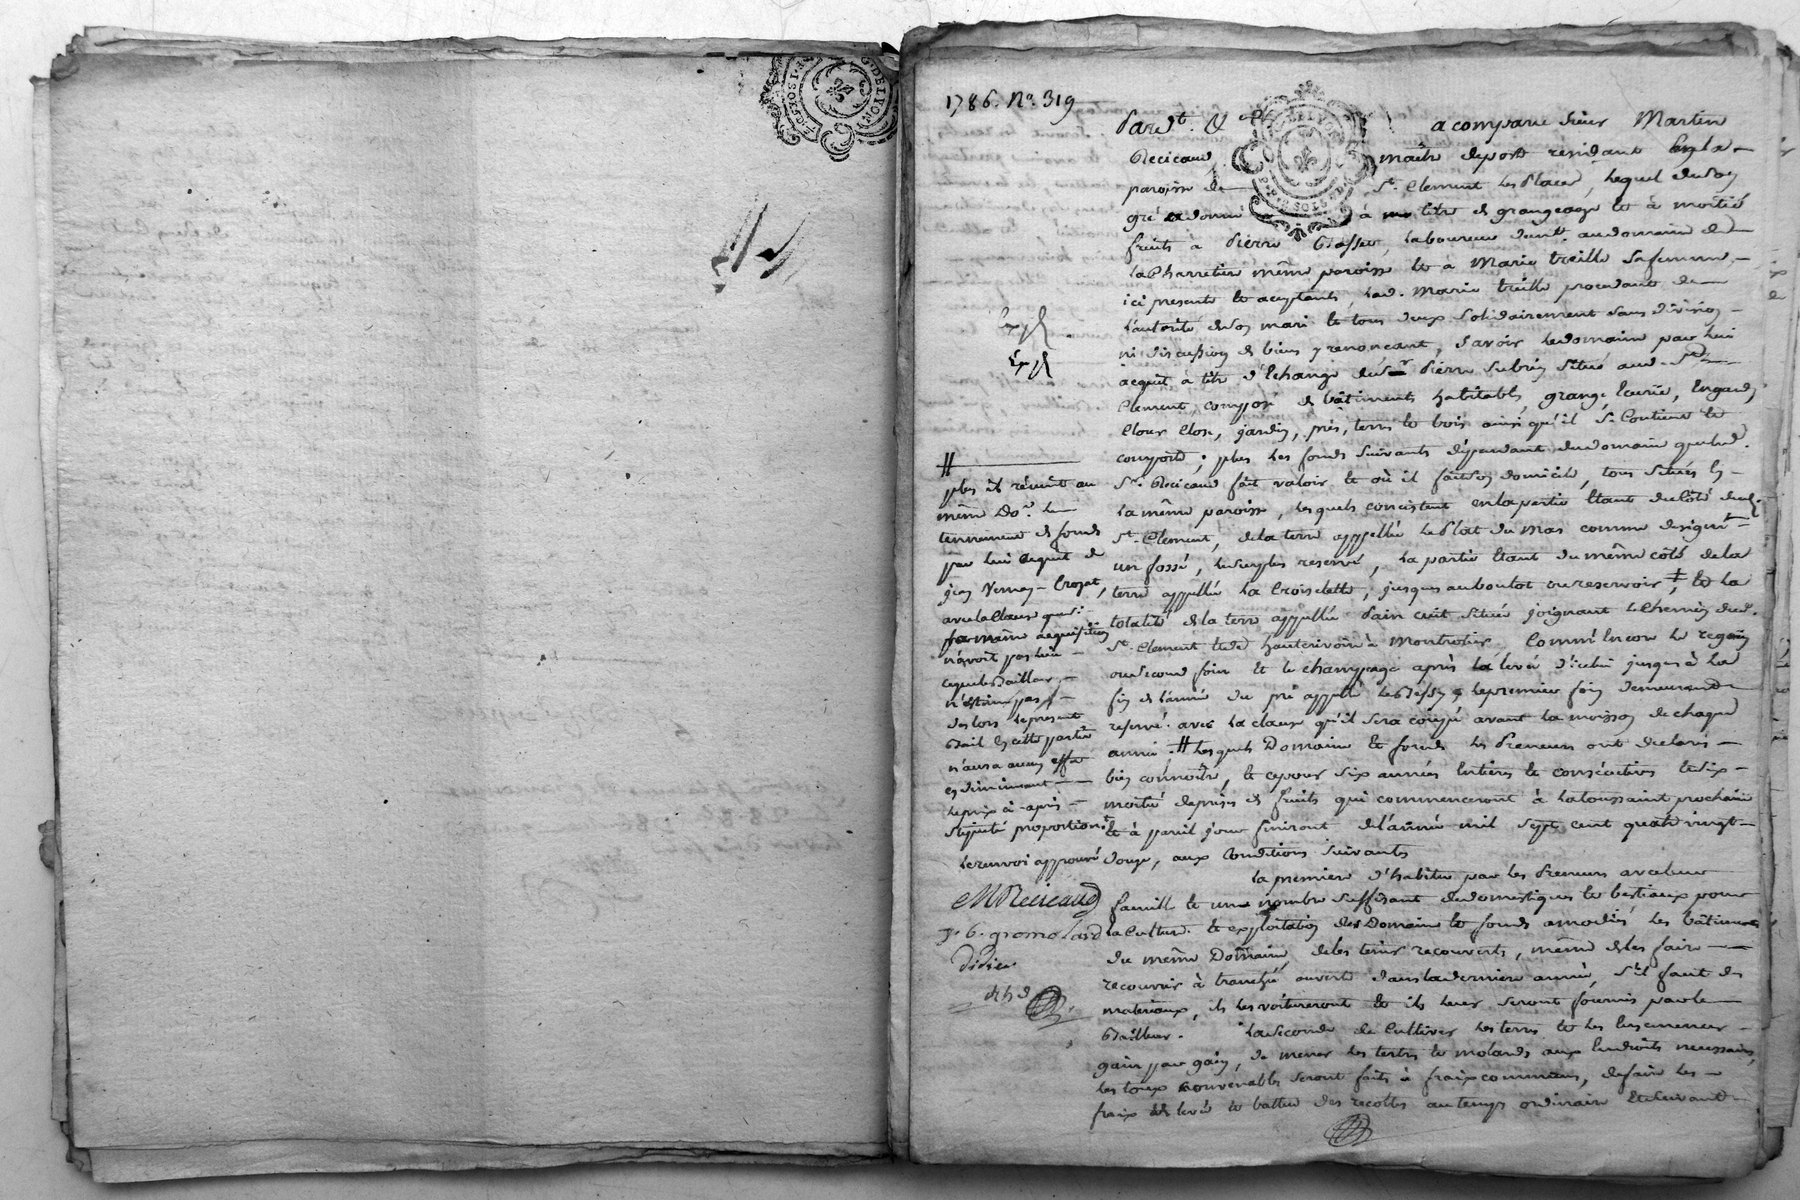 G. DE LYON
1786. N.º 319
Pardt. &
a comparu sieur Martin
Recicaud maître de poste residant en la
paroisse de St. Clement les Places, lequel de son
gré a donné à titre de grangeage et à moitié
fruits à Pierre laboureur demt. au domaine de
la Charretiere même paroisse et à Marie treille sa femme
ici presents et aceptants, lad. Marie treille procedante de
l'autorité de son mari et tous deux solidairement sans division
ni discussion de biens y renoncant, savoir le domaine par lui
acquit à titre d'Echange du sr. Pierre Subrin situé aud. St.
Clement, composé de bâtiments habitables, grange, Ecurie, hangard,
Cour Close, jardin, prés, terres et bois ainsi qu'il se Contient et
comporte; plus les fonds suivants dépendant du domaine que led.
Sr. Recicaud fait valoir et où il fait son domicile, tous situés en
la même paroisse, lesquels consistent en la partie Etant du côté dud.
St. Clement, de la terre appellée le Plat du mas comme designé
un fossé, le surplus reservé, la partie Etant du même côté de la
terre appellée la Croiselette, jusques au boutot ou reservoir, et la
totalité de la terre appellée Pain cuit située joignant le Chemin dud.
St. Clement et de hauterivoire à Montrotier, Comme Encore le regain
ou second foin et le champeage après la levée d'icelui jusques à la
fin de l'année du pré appellé le le premier foin demeurant
reservé avec la clause qu'il sera coupé avant la moisson de chaque
année. # Lesquels Domaine et fonds les Preneurs ont declaré
bien connoître, et ce pour six années Entieres et consécutives et six
moitié de prises de fruits qui commenceront à la toussaint prochaine
et à pareil jour finiront de l'année mil sept cent quatre vingt
douze, aux Conditions suivantes
La premiere d'habiter par les Preneurs avec leur
famille et un nombre suffisant de domestiques et bestiaux pour
la Culture et exploitation des Domaine et fonds amodiés, les bâtiments
du même Domaine, de les tenir recouverts, même de les faire
recouvrir à tranchée ouverte dans la derniere année, s'il faut des
materiaux, ils les voitureront et ils leur seront fournis par le
Bailleur. La seconde de Cultiver les terres et les Ensemencer
gain par gain, de mener les tertres et molards aux Endroits necessaires,
les convenables seront faits à fraix communs, de faire les
fraix de levée et battue des recoltes au temps ordinaire et suivant
#
plus il réunit au
même Dne. le
tennement de fonds
par lui acquit de
jean Vernay-Crozat,
avec la Clause que si
la même acquisition
n'avoit pas lieu
ce que le Bailleur
n'estime pas,
des lors le present
Bail en cette partie
n'aura aucun effet
en diminuant
le prix ci-après
stipulé proportiont.
le renvoi approuvé
MRecicaud
j. b. gromolard
Didier